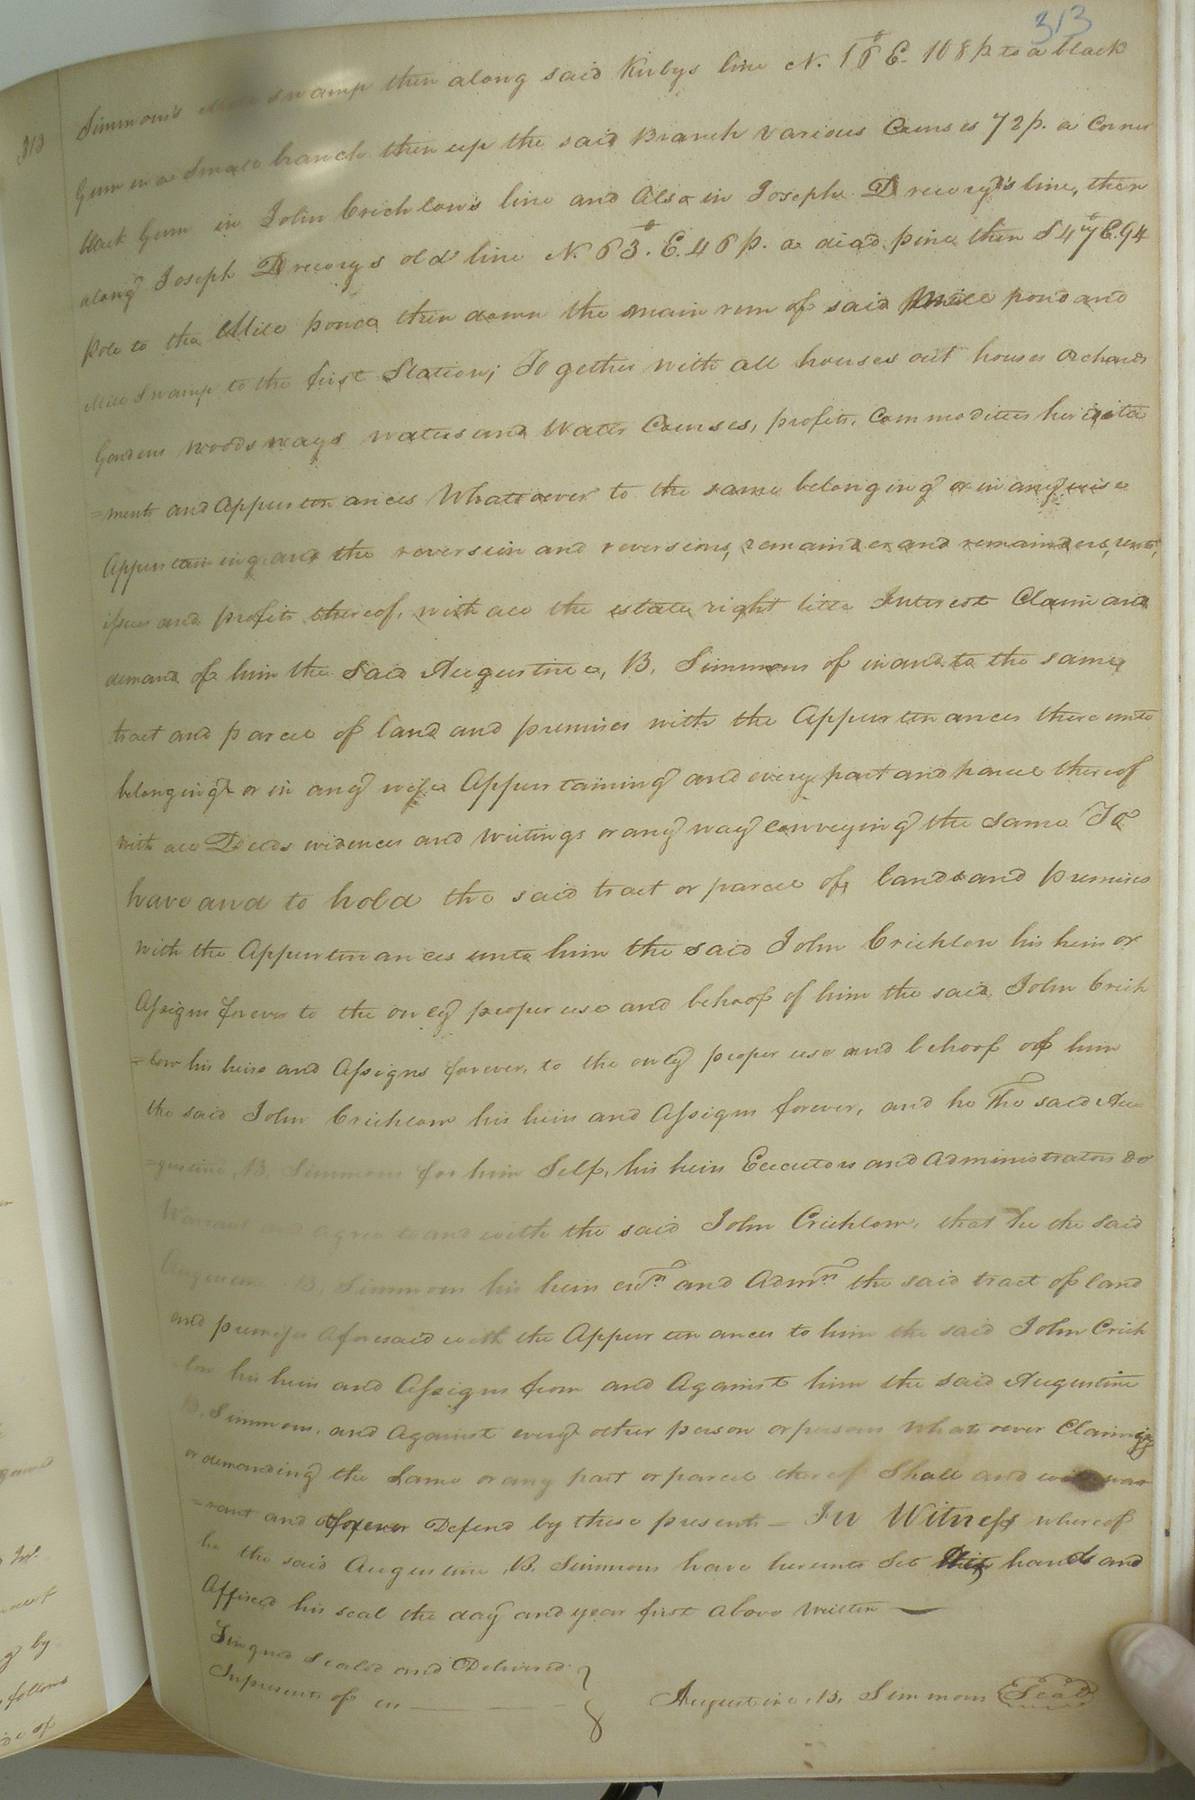 313
313
Simmons's Mill swamp then along said Kirbys line N. 16° E. 168 p to a black
Gum in a Small branch then up the said Branch Various Courses 72 p. a Corner
black Gum in John Crichlow's line and also in Joseph Drecory's line, then
along Joseph Drecorys old line N. 63°. E. 46 p. a dead pine then S 47° E. 94
Pole to the Mill pond then down the main run of said Mill pond and
Mill Swamp to the first Station; Together with all houses out houses orchards
Gardens woods ways waters and Water Courses, profits, Commodities heridita
=ments and Appurtenances Whatsoever to the same belonging or in any wise
Appurtaining and the reversion and reversions, remainder and remainders, rents,
issues and profits thereof, with all the estate right title Interest Claim and
demand of him the Said Augustine, B. Simmons of in and to the same
tract and parcel of land and premises with the Appurtenances thereunto
belonging or in any wise Appurtaining and every part and parcel thereof
with all Deeds evidences and writings or any way conveying the same To
have and to hold the said tract or parcel of land and premises
with the Appurtenances unto him the said John Crichlow his heirs or
Assigns forever to the only proper use and behoof of him the said John Crich
=low his heirs and Assigns forever, to the only proper use and behoof of him
the said John Crichlow his heirs and Assigns forever, and he The said Au
=gustine B. Simmons for him Self, his heirs Executors and administrators do
Warrant and agree to and with the said John Crichlow, that he the said
Augustine B. Simmons his heirs exrs. and Admrs. the said tract of land
and premises aforesaid with the Appurtenances to him the said John Crich
low his heirs and Assigns from and Against him the said Augustine
B. Simmons, and Against every other person or persons Whatsoever Claiming
or demanding the Same or any part or parcel thereof Shall and will war
=rant and forever Defend by these presents – In Witness whereof
he the said Augustine B. Simmons have hereunto Set his hand and
Affixed his seal the day and year first above written
Singned sealed and Delivered
Inpresents of us
Augustine. B. Simmons Seal